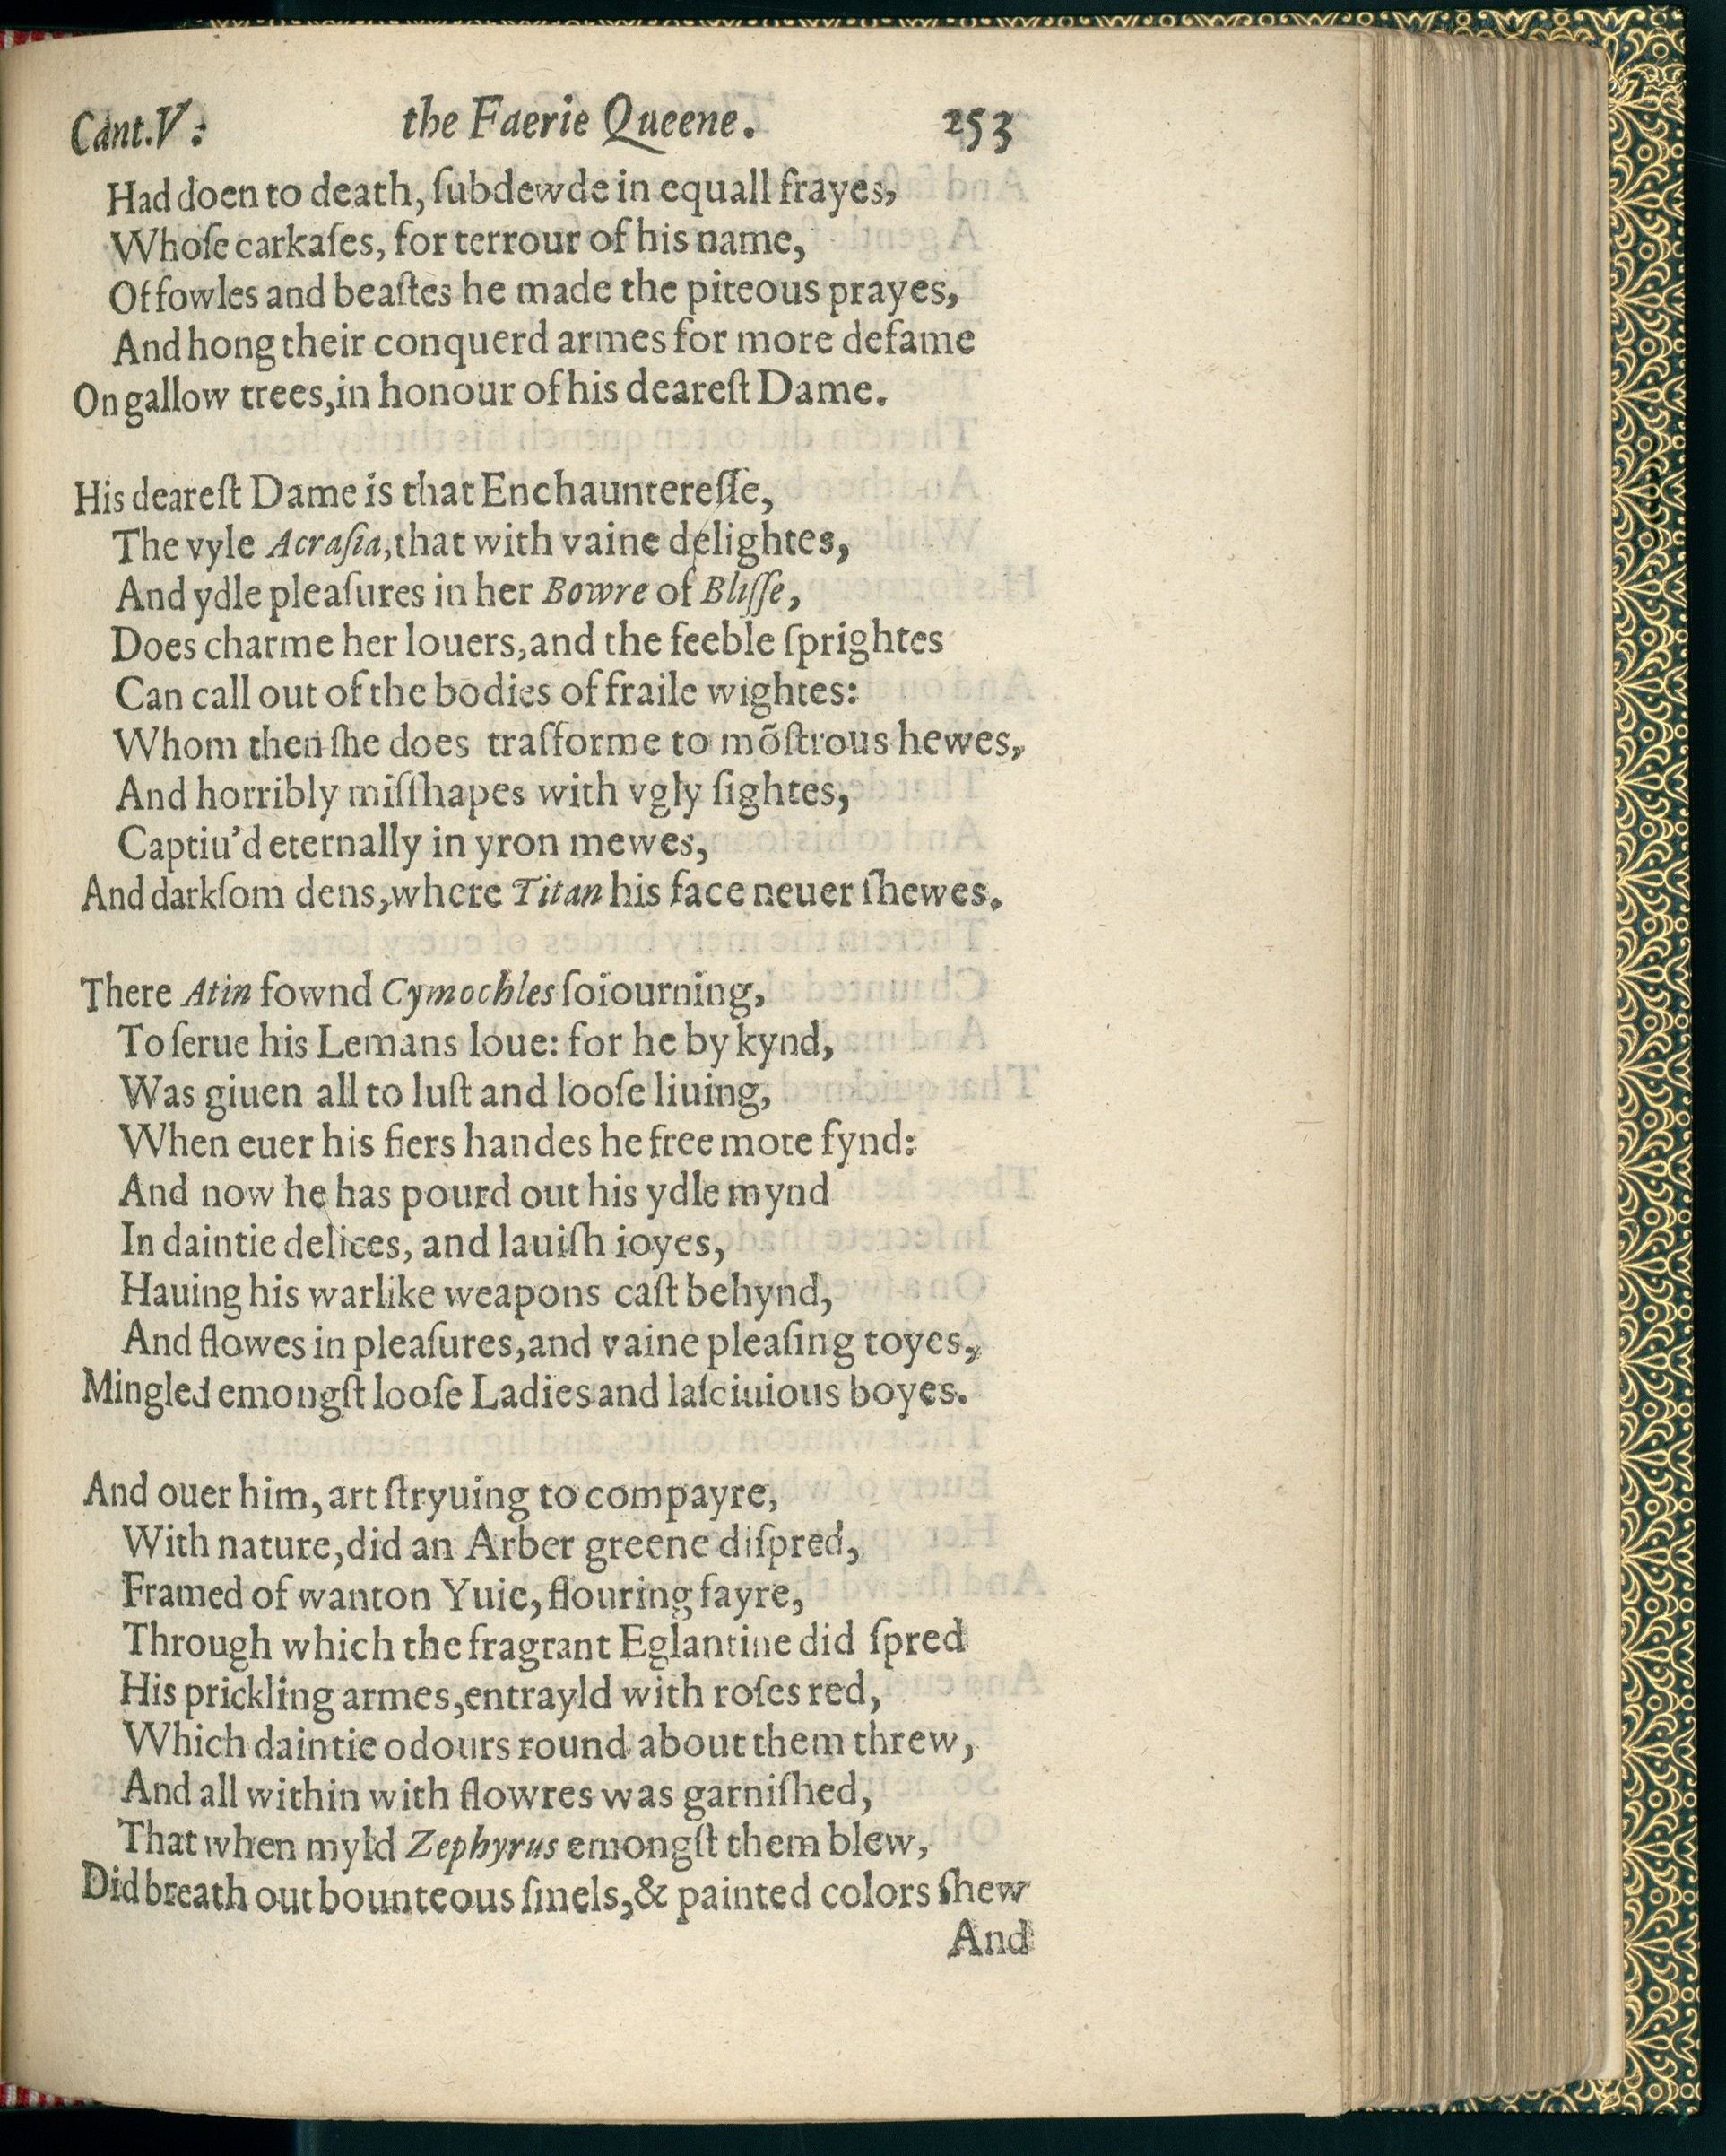 Cant.V: the Faerie Queene. 253
Had doen to death, ſubdewde in equall frayes,
Whoſe carkaſes, for terrour of his name,
Of fowles and beaſtes he made the piteous prayes,
And hong their conquerd armes for more defame
On gallow trees, in honour of his deareſt Dame.
His deareſt Dame is that Enchauntereſſe,
The vyle Acraſia, that with vaine delightes,
And ydle pleaſures in her Bowre of Bliſſe,
Does charme her louers, and the feeble ſprightes
Can call out of the bodies of fraile wightes:
Whom then ſhe does traſforme to mõſtrous hewes,
And horribly miſſhapes with vgly ſightes,
Captiu'd eternally in yron mewes,
And darkſom dens, where Titan his face neuer ſhewes.
There Atin fownd Cymochles ſoiourning,
To ſerue his Lemans loue: for he by kynd,
Was giuen all to luſt and looſe liuing,
When euer his fiers handes he free mote fynd:
And now he has pourd out his ydle mynd
In daintie delices, and lauiſh ioyes,
Hauing his warlike weapons caſt behynd,
And flowes in pleaſures, and vaine pleaſing toyes,
Mingled emongſt looſe Ladies and laſciuious boyes.
And ouer him, art ſtryuing to compayre,
With nature, did an Arber greene diſpred,
Framed of wanton Yuie, flouring fayre,
Through which the fragrant Eglantine did ſpred
His prickling armes, entrayld with roſes red,
Which daintie odours round about them threw,
And all within with flowres was garniſhed,
That when myld Zephyrus emongſt them blew,
Did breath out bounteous ſmels, & painted colors ſhew
And